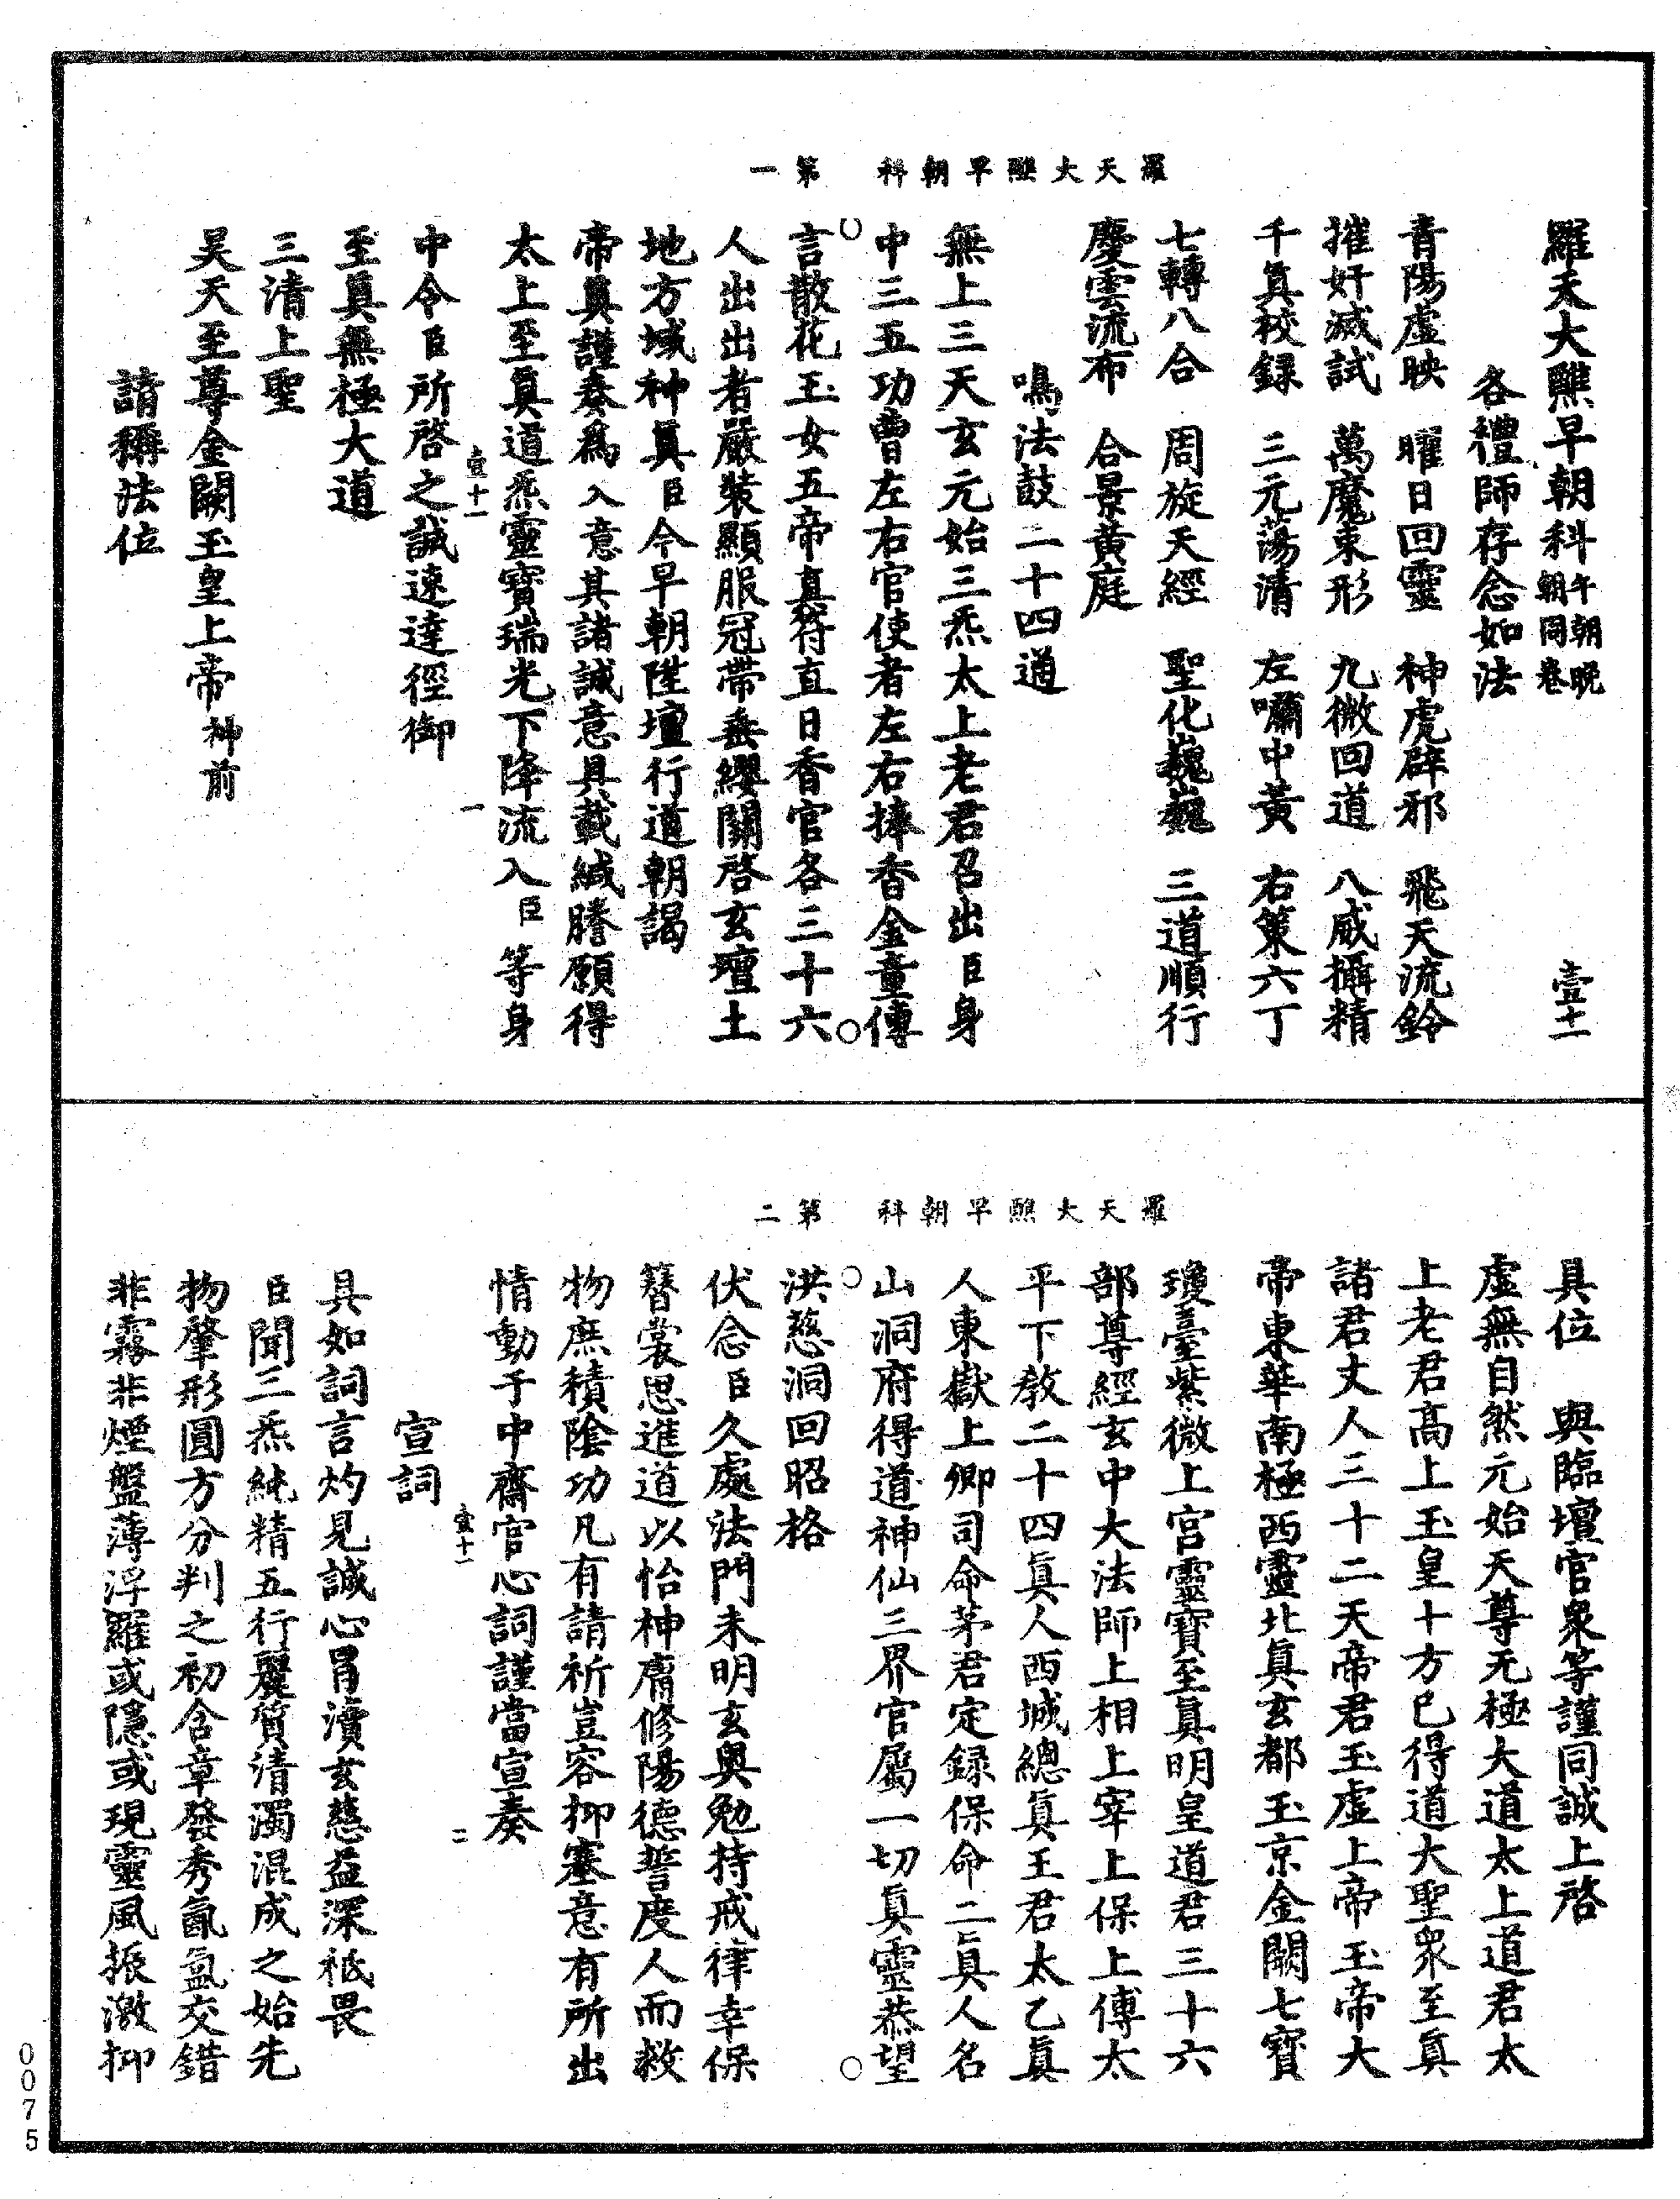 羅天大醮早朝科　第一
羅天大醮早朝科午朝晚朝同卷　壹十一
各禮師存念如法
青陽虛映　曜日回靈　神虎辟邪　飛天流鈴
摧奸滅試　萬魔束形　九微回道　八威攝精
千眞校錄　三元蕩清　左嘯中黃　右策六丁
七轉八合　周旋天經　聖化巍巍　三道順行
慶雲流布　合景黃庭
鳴法鼓二十四通
無上三天玄元始三炁太上老君召出臣身
中三五功曹左右官使者左右捧香金童傳
言散花玉女五帝直符直日香官各三十六
人出出者嚴裝顯服冠帶垂纓關啓玄壇土
地方域神眞臣今早朝陞壇行道朝謁
帝眞謹奏爲入意其諸誠意具載緘謄願得
太上至眞道炁靈寶瑞光下降流入臣等身
壹十一　一
中令臣所啓之誠速達徑御
至眞無極大道
三清上聖
昊天至尊金闕玉皇上帝神前
請稱法位
羅天大醮早朝科　第二
具位　與臨壇官衆等謹同誠上啓
虛無自然元始天尊无極大道太上道君太
上老君高上玉皇十方已得道大聖衆至眞
諸君丈人三十二天帝君玉虛上帝玉帝大
帝東華南極西靈北眞玄都玉京金闕七寶
瓊臺紫微上宮靈寶至眞明皇道君三十六
部尊經玄中大法師上相上宰上保上傅太
平下教二十四眞人西城總眞王君太乙眞
人東嶽上卿司命茅君定錄保命二眞人名
山洞府得道神仙三界官屬一切眞靈恭望
洪慈洞回昭格
伏念臣久處法門未明玄奧勉持戒律幸保
簪裳思進道以怡神庸修陽德誓度人而救
物庶積陰功凡有請祈豈容抑塞意有所出
情動于中齋官心詞謹當宣奏
壹十一　二
宣詞
具如詞言灼見誠心冒瀆玄慈益深祗畏
臣聞三炁純精五行麗質清濁混成之始先
物肇形圓方分判之初含章發秀氤氳交錯
非霧非煙盤薄浮羅或隱或現靈風振激抑
0075